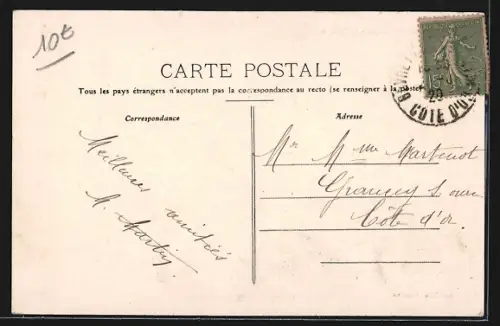 10€
CARTE POSTALE
Tous les pays étrangers n'acceptent pas la correspondance au recto (se renseigner à la poste)
Correspondance
Adresse
Meilleures
amitiés
M. Martin
Mr Mme Martenot
Grancey s. Ource
Côte d'or.
CÔTE D'OR